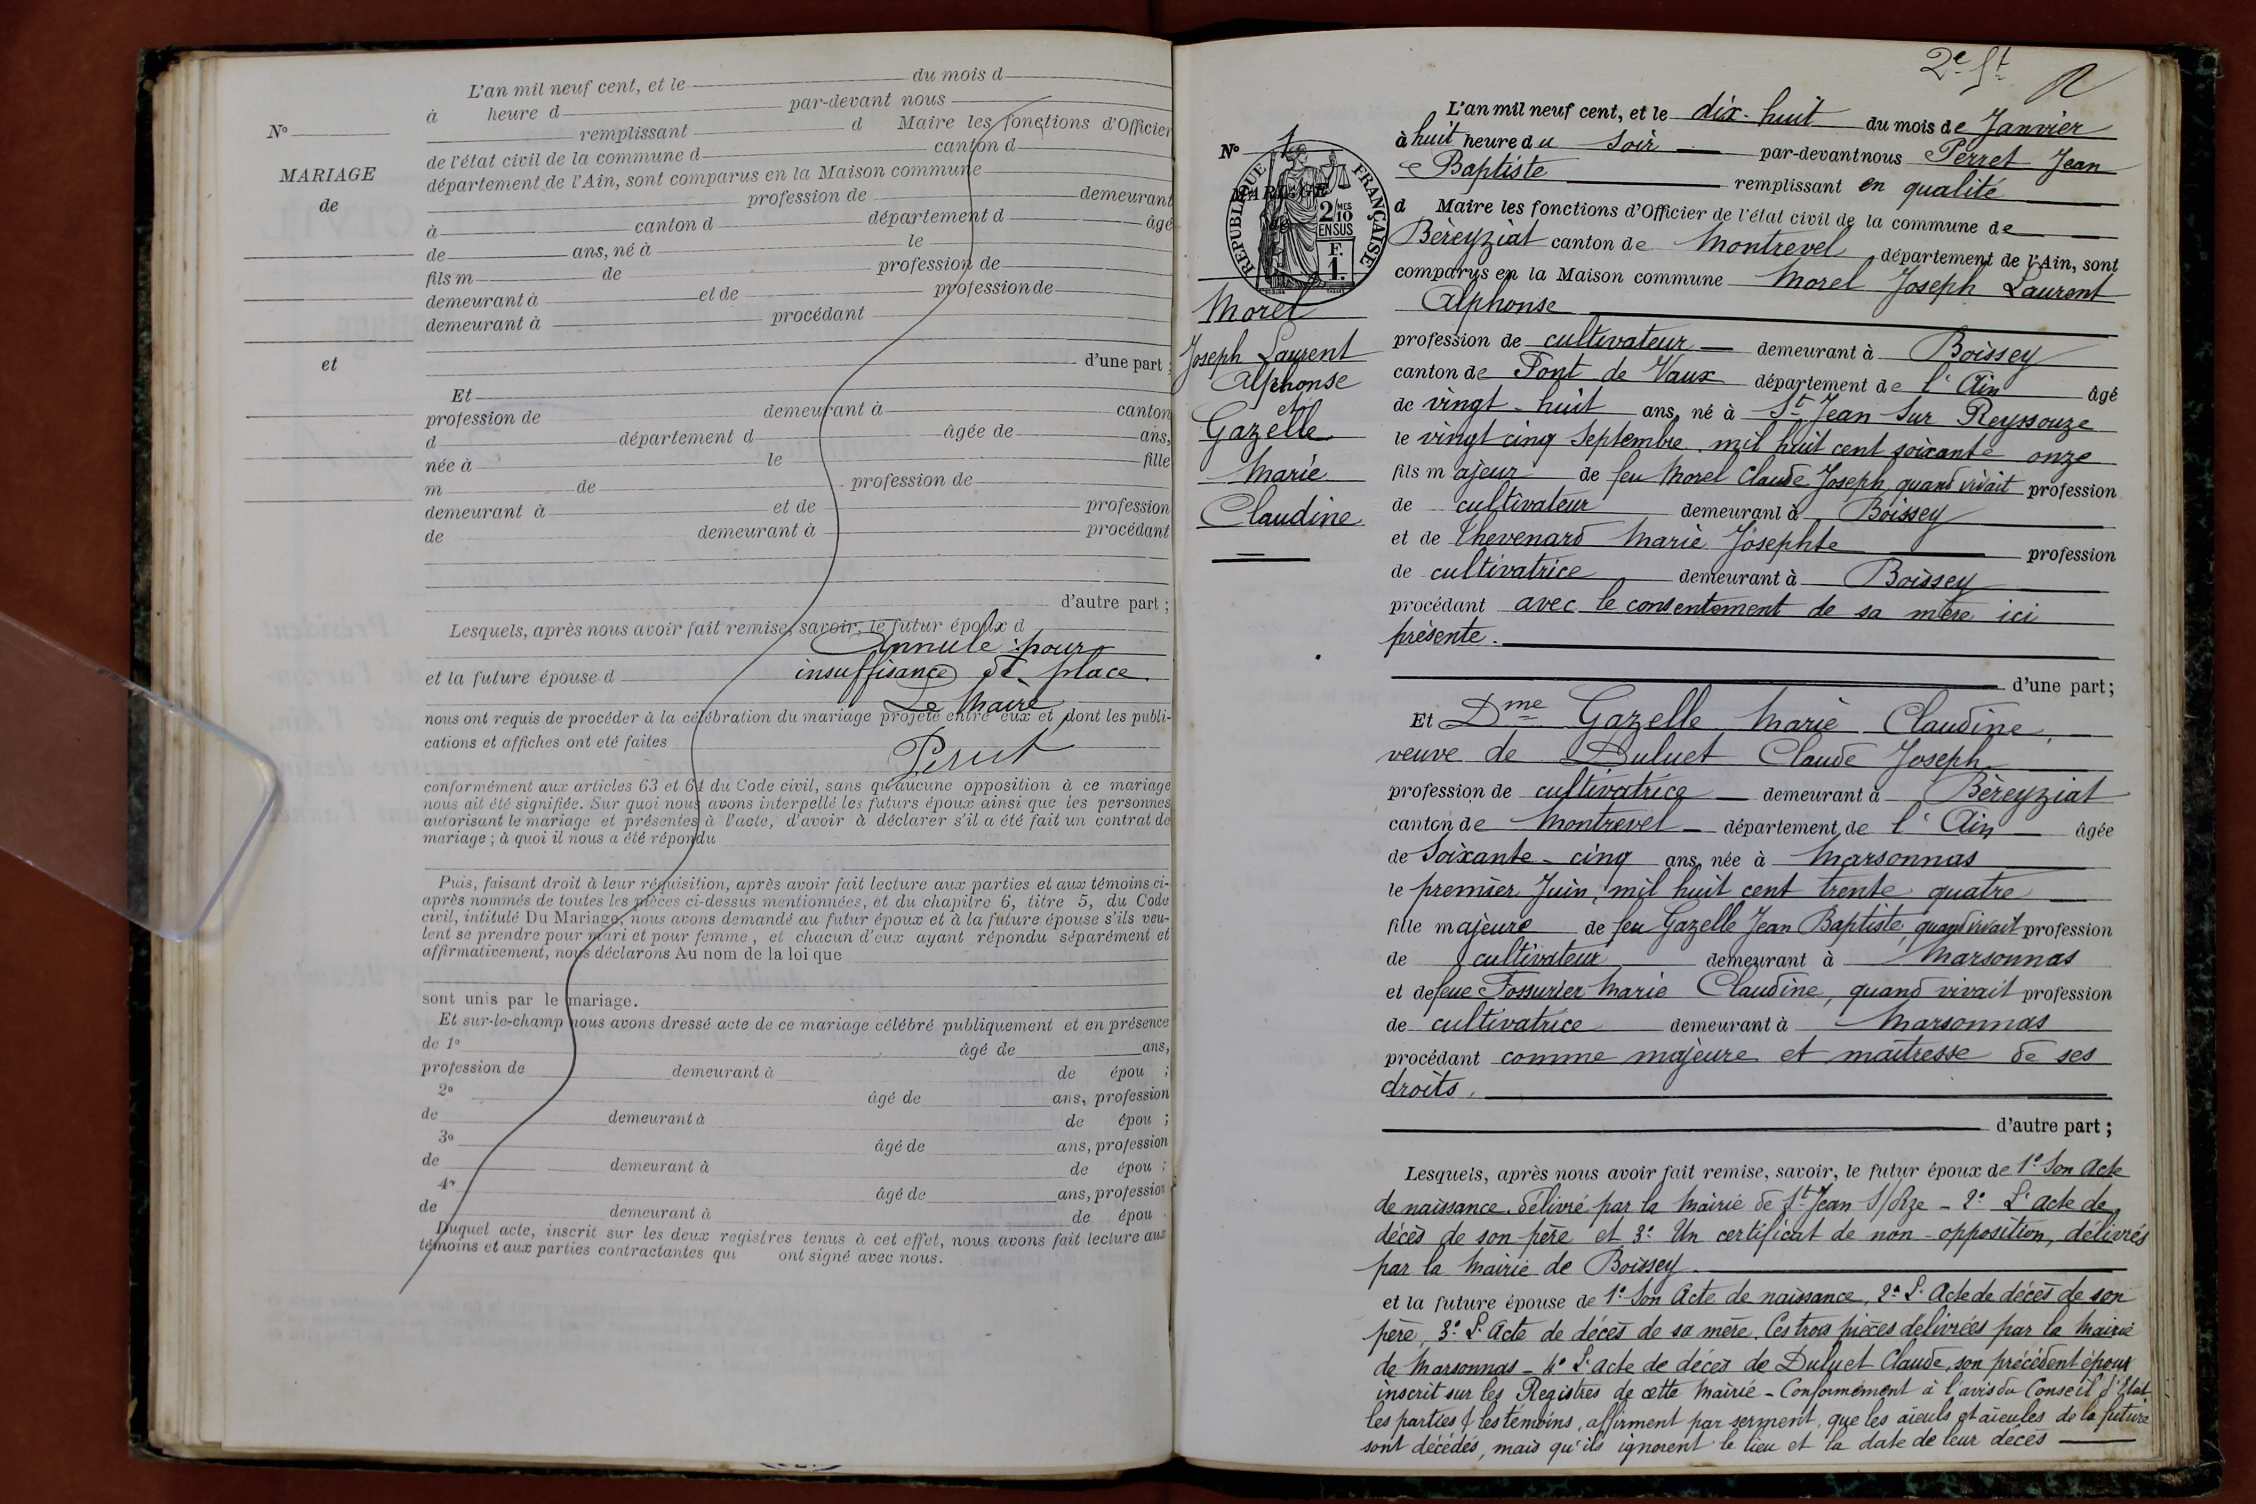 L'an mil neuf cent, et le du mois d
à heure d par-devant nous
remplissant d Maire les fonctions d'Officier
de l'état civil de la commune d canton d
département de l'Ain, sont comparus en la Maison commune
profession de demeurant
à canton d département d âgé
de ans, né à le
fils m de profession de
demeurant à et de profession de
demeurant à procédant
d'une part ;
Et
profession de demeurant à canton
d département d âgée de ans,
née à le fille
m de profession de
demeurant à et de profession
de demeurant à procédant
d'autre part ;
Lesquels, après nous avoir fait remise, savoir, le futur époux d
Annulé pour
et la future épouse d insuffisance de place
Le Maire
nous ont requis de procéder à la célébration du mariage projeté entre eux et dont les publi-
cations et affiches ont été faites
Perret
conformément aux articles 63 et 64 du Code civil, sans qu'aucune opposition à ce mariage
nous ait été signifiée. Sur quoi nous avons interpellé les futurs époux ainsi que les personnes
autorisant le mariage et présentes à l'acte, d'avoir à déclarer s'il a été fait un contrat de
mariage ; à quoi il nous a été répondu
Puis, faisant droit à leur réquisition, après avoir fait lecture aux parties et aux témoins ci-
après nommés de toutes les pièces ci-dessus mentionnées, et du chapitre 6, titre 5, du Code
civil, intitulé Du Mariage, nous avons demandé au futur époux et à la future épouse s'ils veu-
lent se prendre pour mari et pour femme, et chacun d'eux ayant répondu séparément et
affirmativement, nous déclarons Au nom de la loi que
sont unis par le mariage.
Et sur-le-champ nous avons dressé acte de ce mariage célébré publiquement et en présence
de 1° âgé de ans,
profession de demeurant à de épou ;
2° âgé de ans, profession
de demeurant à de épou ;
3° âgé de ans, profession
de demeurant à de épou ;
4° âgé de ans, profession
de demeurant à de épou
Duquel acte, inscrit sur les deux registres tenus à cet effet, nous avons fait lecture aux
témoins et aux parties contractantes qui ont signé avec nous.
N°
MARIAGE
de
et
2e ft
N° 1
MARIAGE
de
RÉPUBLIQUE FRANÇAISE
2 MES
10
EN SUS
F.
1.
Morel
Joseph Laurent
Alphonse
et
Gazelle
Marie
Claudine
L'an mil neuf cent, et le dix-huit du mois de Janvier
à huit heure du soir par-devant nous Perret Jean
Baptiste remplissant en qualité
d Maire les fonctions d'Officier de l'état civil de la commune de
Béreyziat canton de Montrevel département de l'Ain, sont
comparus en la Maison commune Morel Joseph Laurent
Alphonse
profession de cultivateur demeurant à Boissey
canton de Pont de Vaux département de l'Ain âgé
de vingt-huit ans, né à St Jean sur Reyssouze
le vingt cinq Septembre mil huit cent soixante onze
fils majeur de feu Morel Claude Joseph, quand vivait profession
de cultivateur demeurant à Boissey
et de Thevenard Marie Josephte profession
de cultivatrice demeurant à Boissey
procédant avec le consentement de sa mère ici
présente.
d'une part ;
Et Dme Gazelle Marie Claudine,
veuve de Duluet Claude Joseph
profession de cultivatrice demeurant à Béreyziat
canton de Montrevel département de l'Ain âgée
de Soixante-cinq ans, née à Marsonnas
le premier Juin, mil huit cent trente quatre
fille majeure de feu Gazelle Jean Baptiste, quand vivait profession
de cultivateur demeurant à Marsonnas
et de feue Fossurier Marie Claudine, quand vivait profession
de cultivatrice demeurant à Marsonnas
procédant comme majeure et maîtresse de ses
droits.
d'autre part ;
Lesquels, après nous avoir fait remise, savoir, le futur époux de 1° Son Acte
de naissance délivré par la Mairie de St Jean S/Rze - 2° L'acte de
décès de son père et 3° Un certificat de non-opposition, délivrés
par la Mairie de Boissey
et la future épouse de 1° Son Acte de naissance, 2° L'Acte de décès de son
père, 3° L'Acte de décès de sa mère. Ces trois pièces délivrées par la Mairie
de Marsonnas - 4° L'acte de décès de Duluet Claude, son précédent époux
inscrit sur les Registres de cette Mairie - Conformément à l'avis du Conseil d'État
les parties & les témoins, affirment par serment, que les aïeuls et aïeules de la future
sont décédés, mais qu'ils ignorent le lieu et la date de leur décès